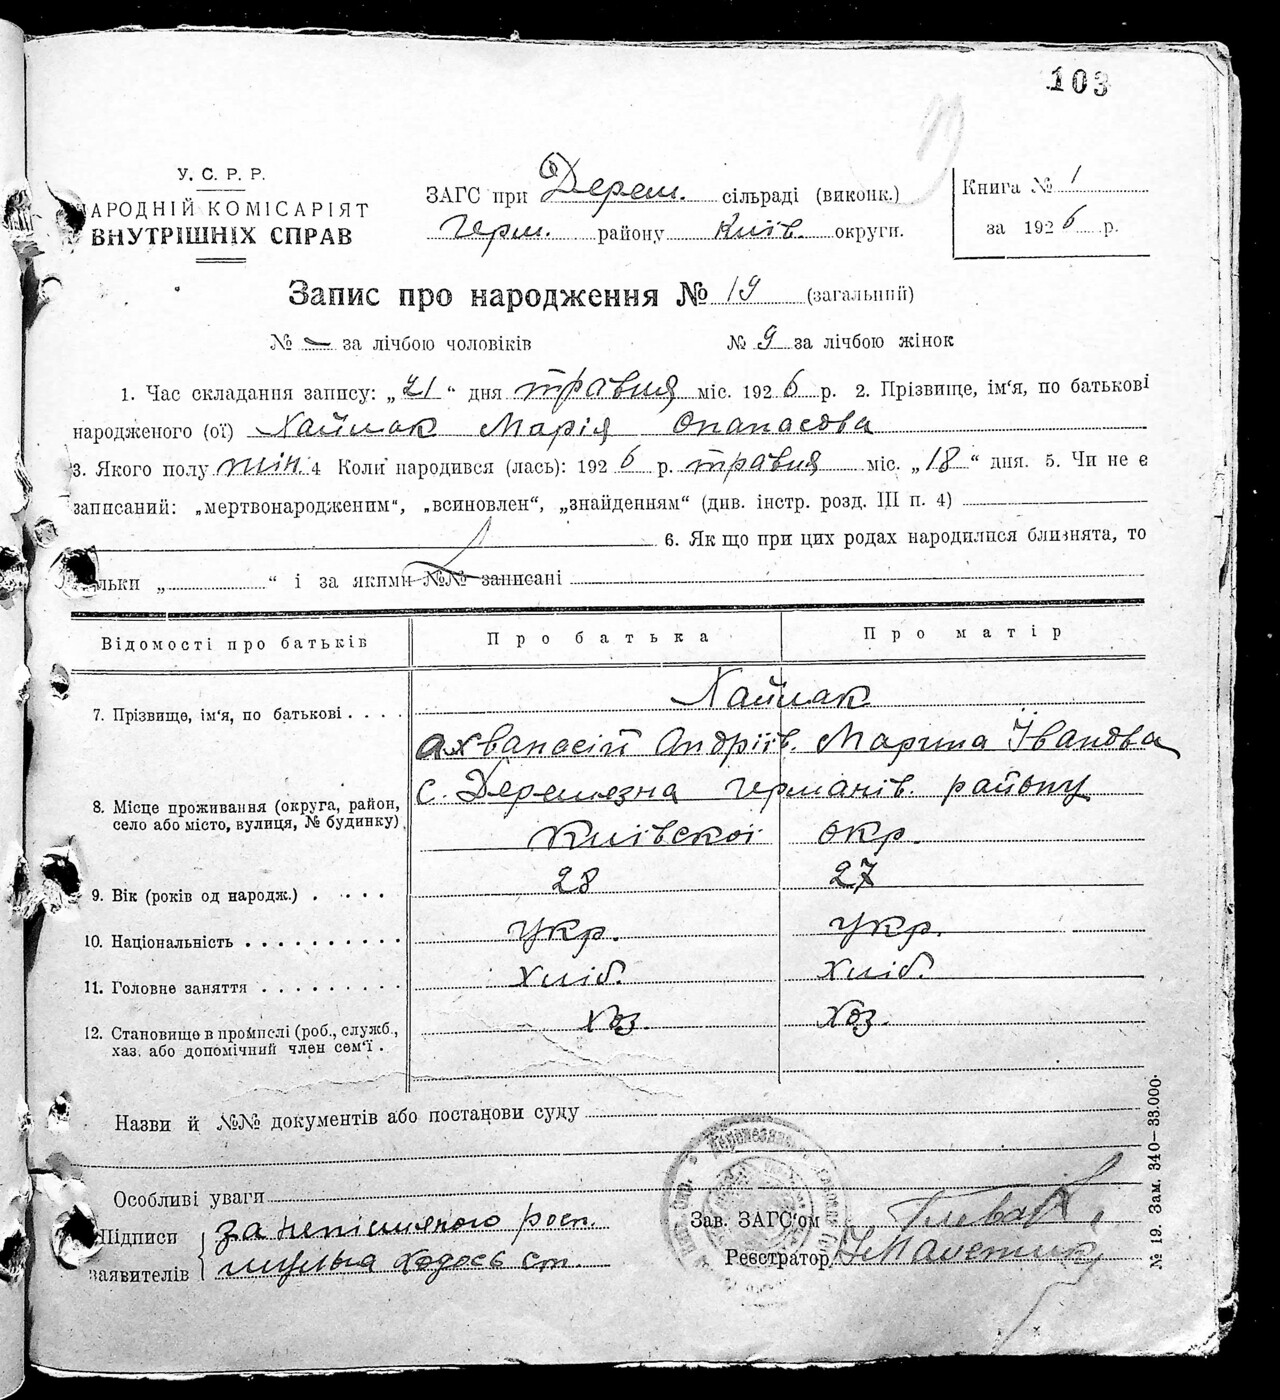 103
У. С. Р. Р.
АРОДНІЙ КОМІСАРІЯТ
ВНУТРІШНІХ СПРАВ
ЗАГС при Дерем. сільраді (виконк.)
Герм. району Київ. округи.
Книга № 1
за 1926 р.
Запис про народження № 19 (загальний)
№ – за лічбою чоловіків № 9 за лічбою жінок
1. Час складання запису: „21“ дня травня міс. 1926 р. 2. Прізвище, ім‘я, по батькові
народженого (ої) Хаймак Марія Опанасова
3. Якого полу жін. 4 Коли народився (лась): 1926 р. травня міс. „18“ дня. 5. Чи не є
записаний: „мертвонародженим“, „всиновлен“, „знайденням“ (див. інстр. розд. III п. 4)
6. Як що при цих родах народилися близнята, то
льки „ “ і за якими №№ записані
Відомості про батьків Про батька Про матір
7. Прізвище, ім‘я, по батькові . . . . Хаймак
Ахванасій Андріїв. Марина Івановa
8. Місце проживання (округа, район, село або місто, вулиця, № будинку) с. Деремезна Германів. району
Київскої окр.
9. Вік (років од народж.) . . . . . 28 27
10. Національність . . . . . . . . . . укр. укр.
11. Головне заняття . . . . . . . . . хліб. хліб.
12. Становище в промислі (роб., служб., хаз. або допомічний член сем‘ї . хоз. хоз.
Назви й №№ документів або постанови суду
Особливі уваги
Підписи
заявителів
за неписьменого росп.
Ходось Ст.
Зав. ЗАГС‘ом
Реєстратор
№ 19. Зам. 340—33.000.